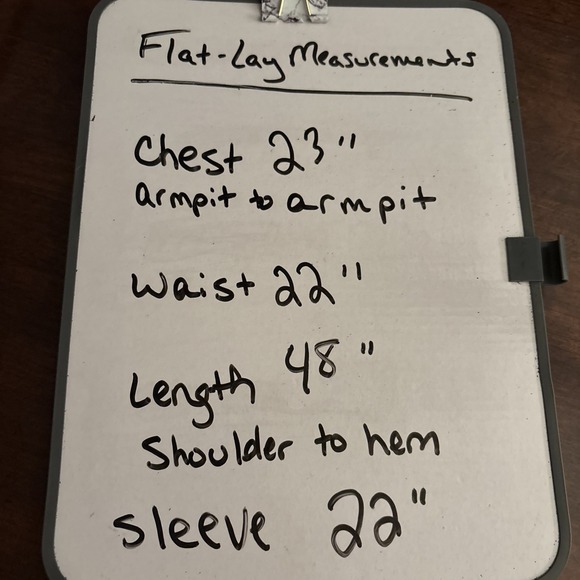 Flat-Lay Measurements
Chest 23"
armpit to armpit
Waist 22"
Length 48"
Shoulder to hem
sleeve 22"